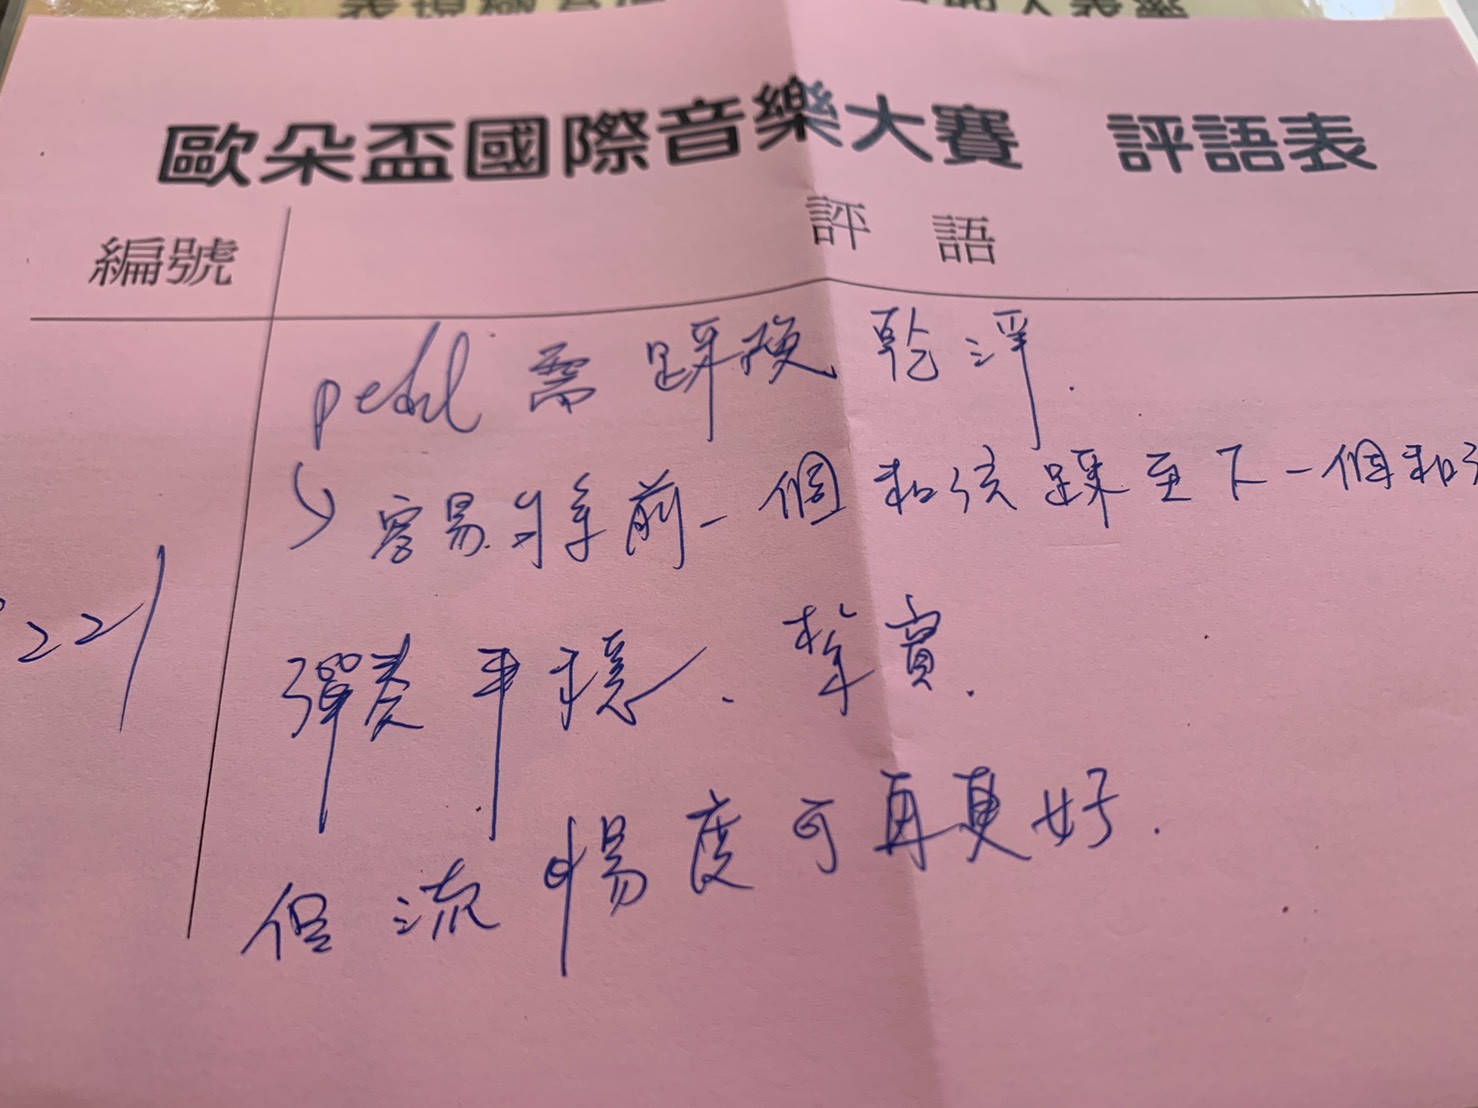 歐朵盃國際音樂大賽 評語表
編號 評語
pedal 需踩換乾淨.
容易將前一個和弦踩至下一個和弦
221
彈奏平穩、紮實.
但流暢度可再更好.